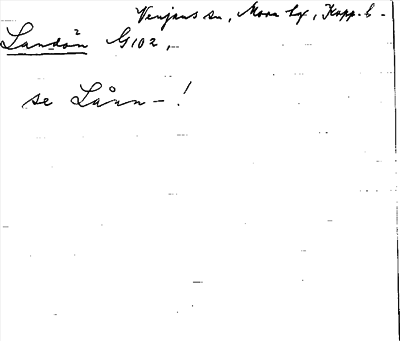 Venjans sn, Mora hd, Kopp. l -
Landön G102,
se Lånn- !